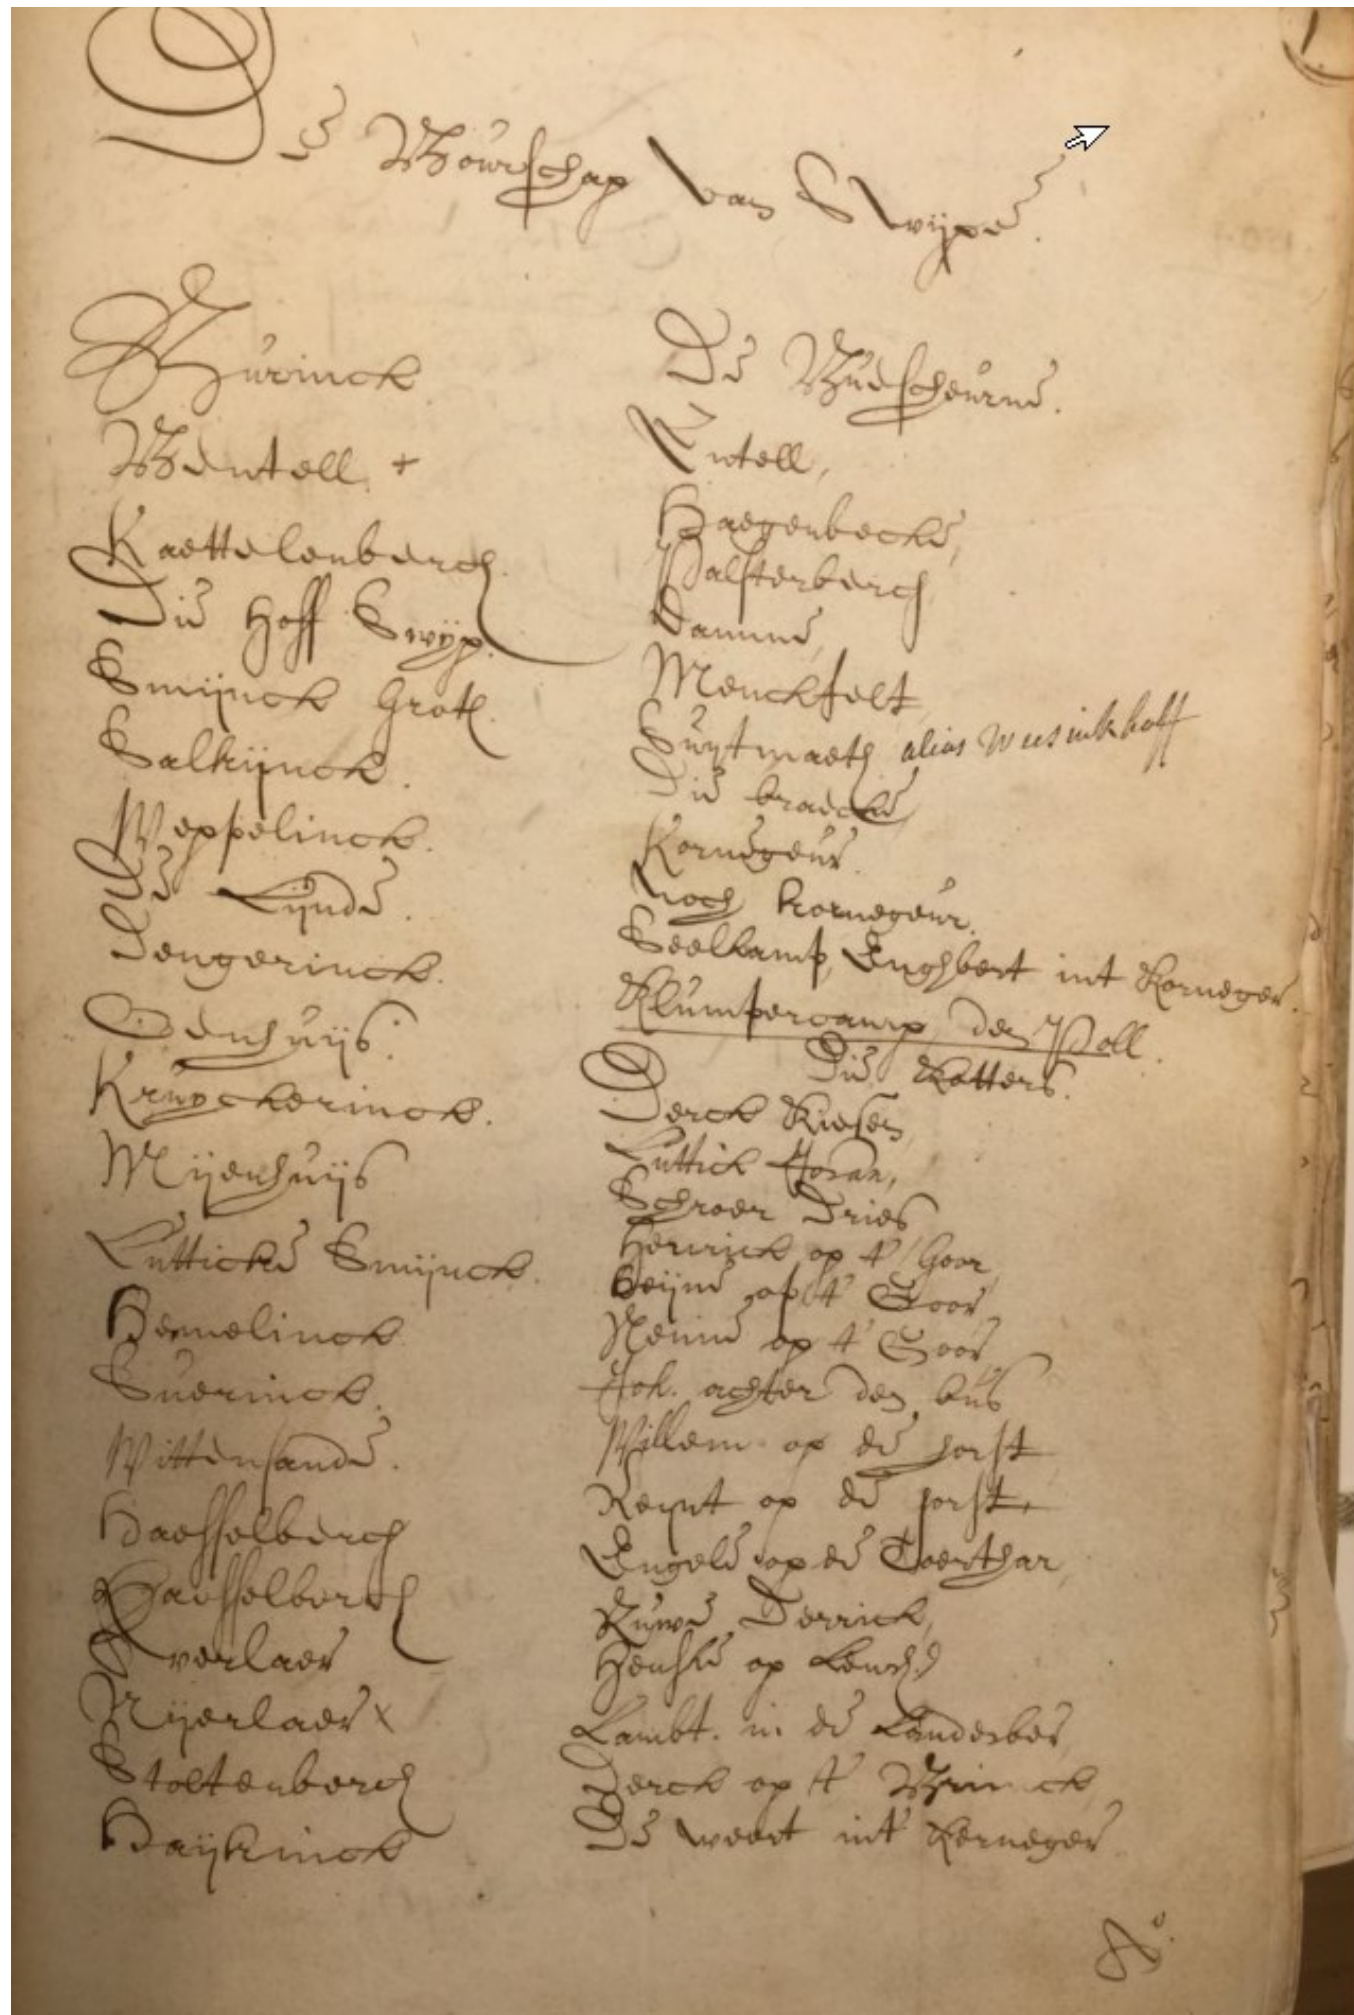 1
De Bourschap van Swijpe.
Burinck
Wentell +
Kaettelenberch.
Die Hoff Swijp.
Smijnck Grot.
Salkijnck.
Weppelinck.
De Lijnde.
Dengerinck.
Odenhuijs.
Kruyckerinck.
Mijenhuijs
Lutticke Smijnck.
Hemelinck
Suerinck.
Wittensande.
Haesselberch
Haesselberch
Averlaer
Nijerlaer x
Stoltenberch
Haijkinck
De Budescheurne.
Entell,
Haegenbecke,
Palsterberch
Damme,
Menckfelt
Suytmaeth alias Weesinkhoff
Die braecke,
Kornegeur.
Noch kornegeur.
Seelkamp, Enghbert int Korneger.
Klumpercamp, den Poll.
Die Kotters.
Derck Riesen
Luttick Joran,
Schroer Dries
Henrick op t' Goor
Heijne op t' Goor
Nenne op t' Goor
Joh. achter den bus
Willem op de horst
Reynt op de horst,
Engele op de Toerthar,
Ruwe Derrick,
Henske op
Lambt. in de Landerber
Derck op t' Brinck,
De weert int kerneger